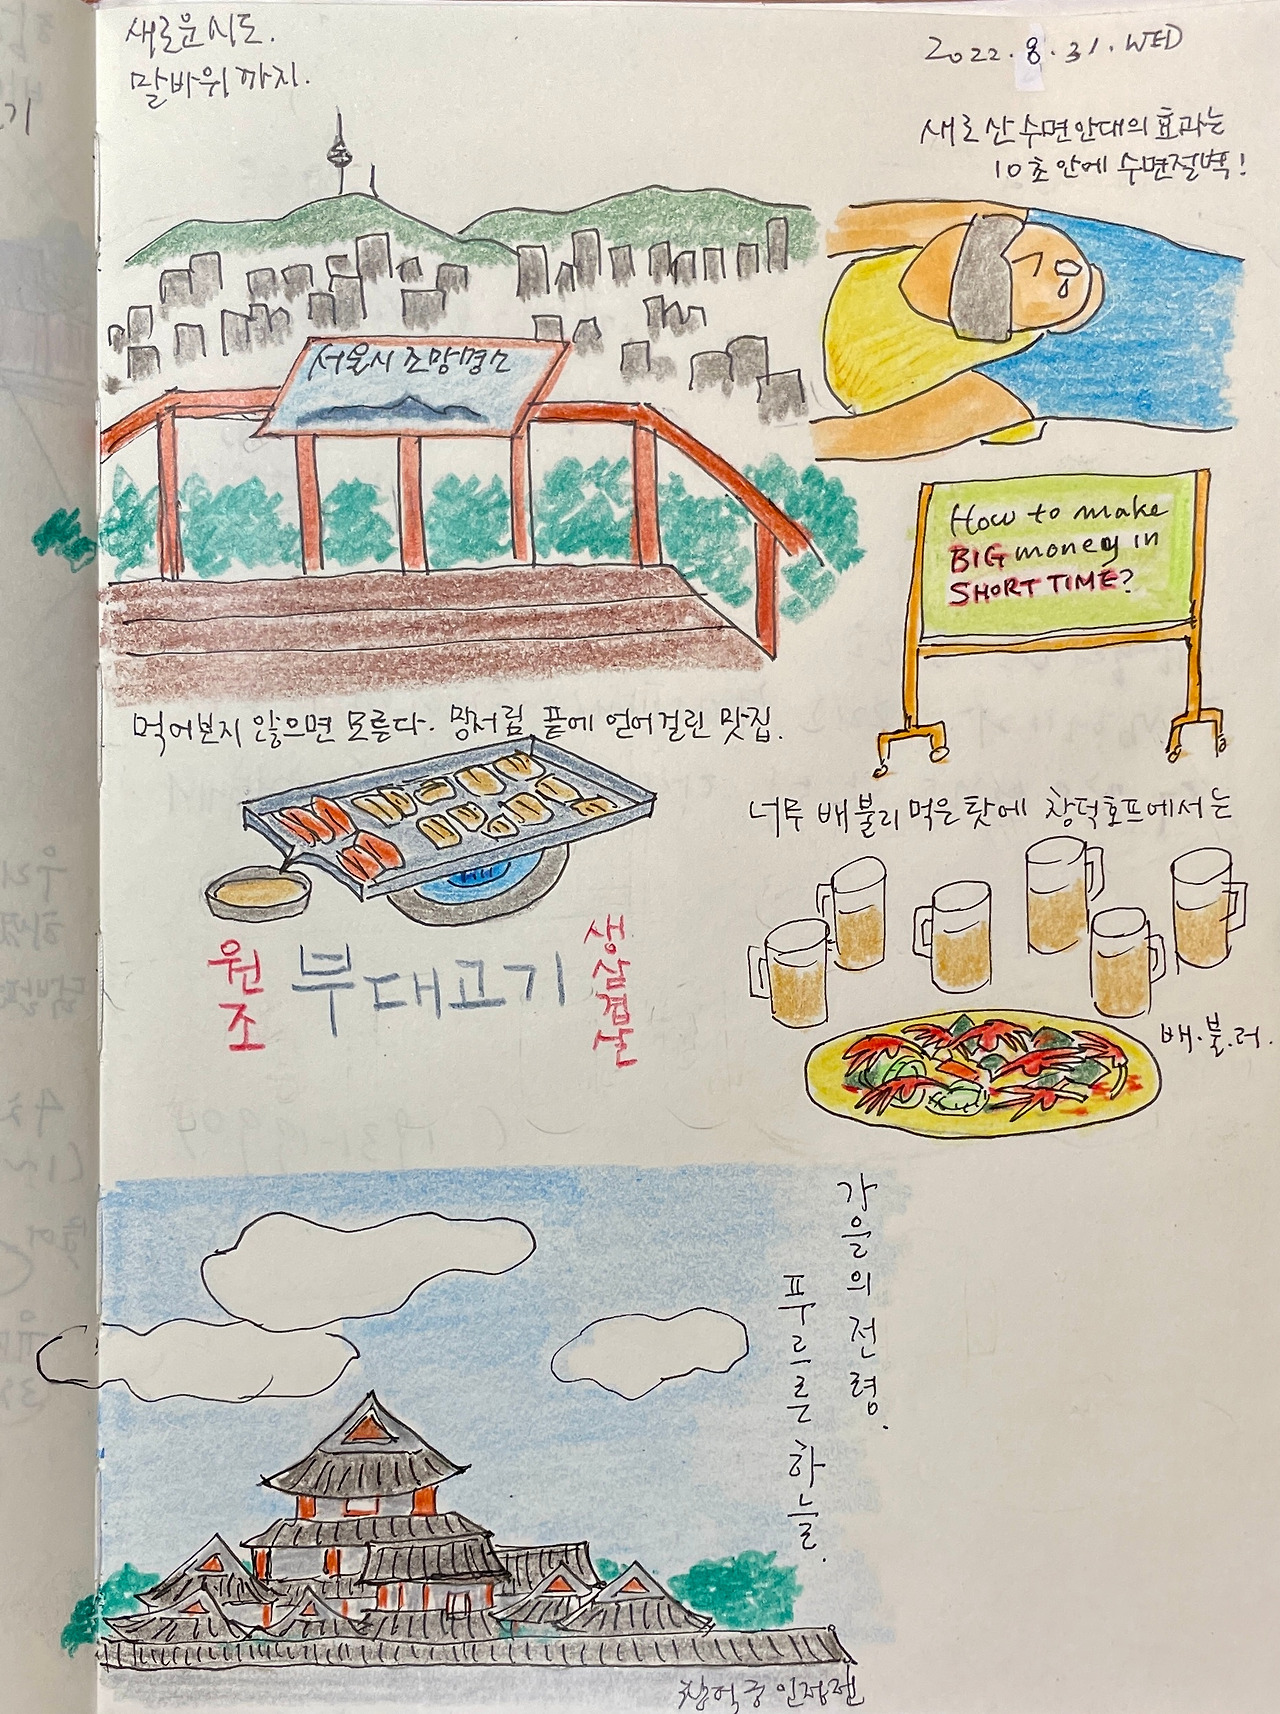 새로운 시도.
말바위 까지.
2022.8.31.WED
새로 산 수면안대의 효과는
10초 안에 수면절벽!
서울시 조망명소
How to make
BIG money in
SHORT TIME?
먹어보지 않으면 모른다. 망처럼 끝에 얻어걸린 맛집.
원조
부대고기
생삼겹살
너무 배불리 먹은 탓에 창덕호프에서는
배.불.러.
가을의 전령.
푸르른 하늘.
창덕궁 인정전